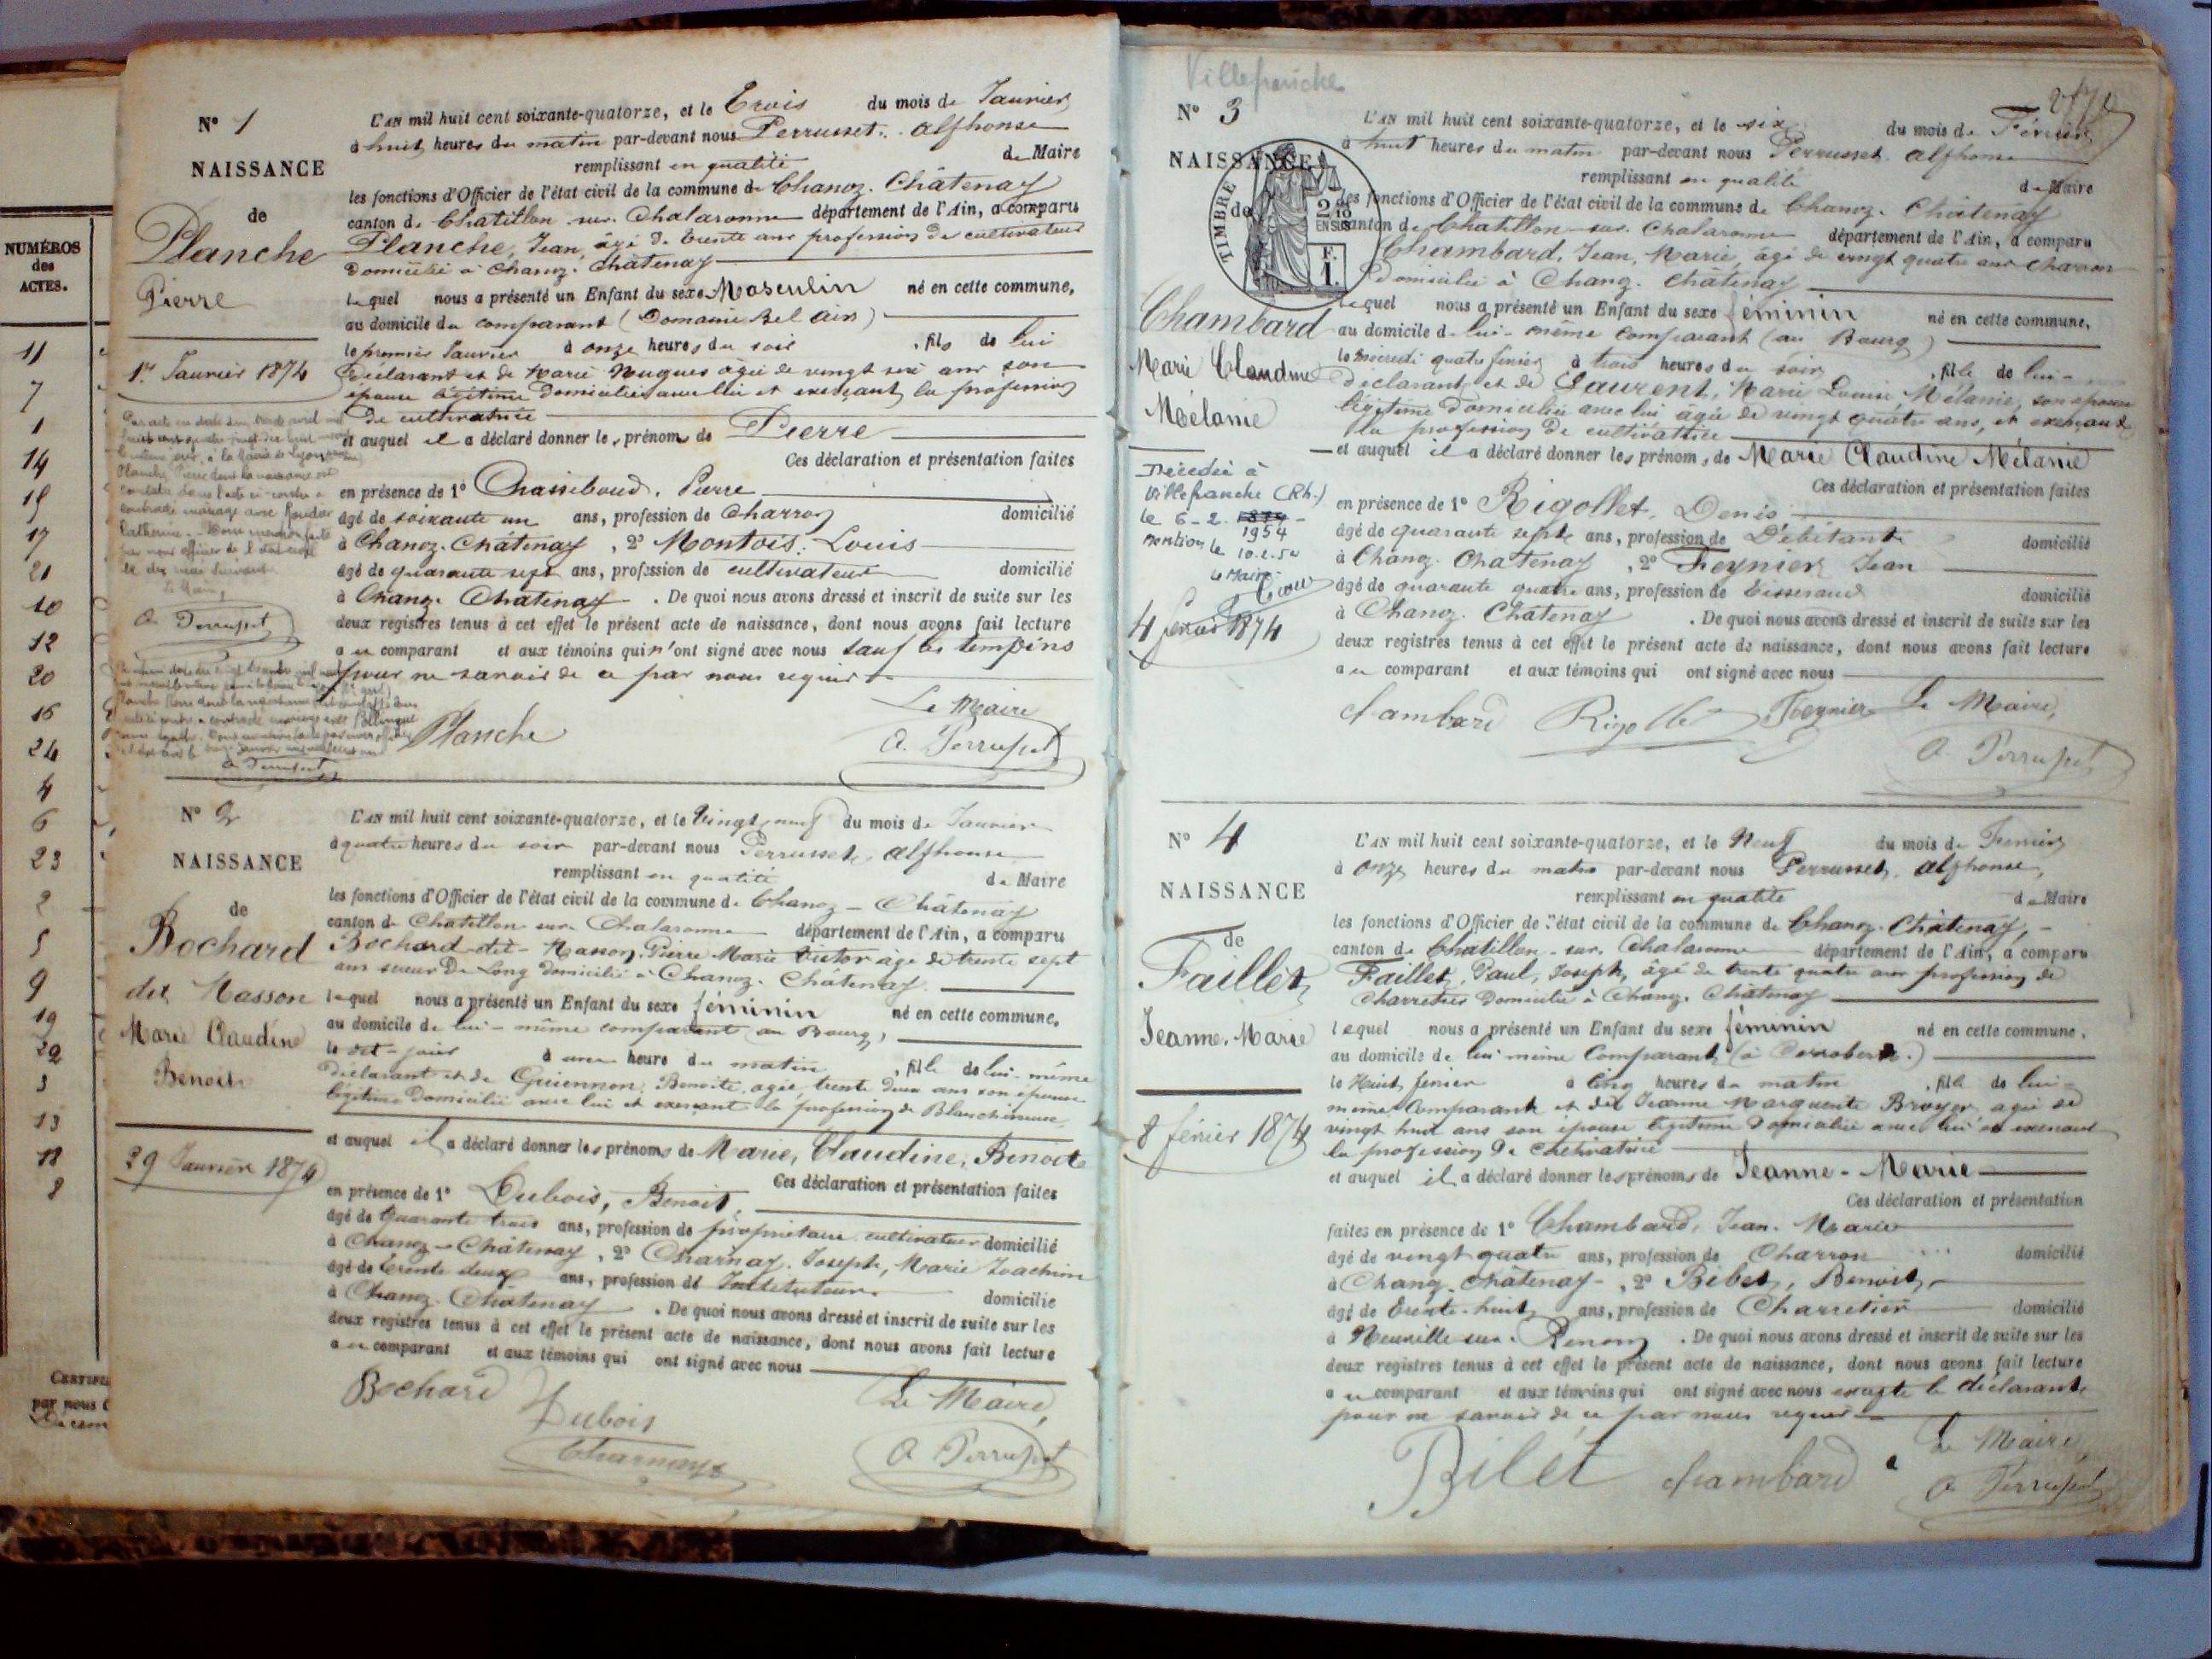 NUMÉROS
des
ACTES.
11
7
1
14
15
17
21
10
12
20
16
24
4
6
23
2
5
9
19
22
3
13
18
8
par nous
N° 1
NAISSANCE
de
Planche
Pierre
1er Janvier 1874
L'AN mil huit cent soixante-quatorze, et le Trois du mois de Janvier
à huit heures du matin par-devant nous Perrusset, Alphonse
remplissant en qualité de Maire
les fonctions d'Officier de l'état civil de la commune de Chanoz-Châtenay
canton de Chatillon sur Chalaronne département de l'Ain, a comparu
Planche, Jean, âgé de trente ans profession de cultivateur
domicilié à Chanoz-Châtenay
lequel nous a présenté un Enfant du sexe Masculin né en cette commune,
au domicile du comparant (Domaine Bel air)
le premier Janvier à onze heures du soir, fils de lui
déclarant et de Marie Nugues âgée de vingt six ans son
épouse légitime domiciliée avec lui et exerçant la profession
de cultivatrice
et auquel il a déclaré donner le prénom de Pierre
Ces déclaration et présentation faites
en présence de 1° Chasseboud, Pierre
âgé de soixante un ans, profession de Charron domicilié
à Chanoz-Châtenay, 2° Montois, Louis
âgé de quarante sept ans, profession de cultivateur domicilié
à Chanoz-Châtenay. De quoi nous avons dressé et inscrit de suite sur les
deux registres tenus à cet effet le présent acte de naissance, dont nous avons fait lecture
au comparant et aux témoins qui n'ont signé avec nous sauf les témoins
pour ne savoir de ce par nous requis
Planche
Le Maire
A. Perrusset
N° 2
NAISSANCE
de
Bochard
dit Masson
Marie Claudine
Benoite
29 Janvier 1874
L'AN mil huit cent soixante-quatorze, et le Vingt neuf du mois de Janvier
à quatre heures du soir par-devant nous Perrusset, Alphonse
remplissant en qualité de Maire
les fonctions d'Officier de l'état civil de la commune de Chanoz-Châtenay
canton de Chatillon sur Chalaronne département de l'Ain, a comparu
Bochard dit Masson, Pierre Marie Victor âgé de trente sept
ans scieur De Long domicilié à Chanoz-Châtenay
lequel nous a présenté un Enfant du sexe féminin né en cette commune,
au domicile de lui-même comparant au Bourg,
le dit-jour à une heure du matin, fille de lui-même
déclarant et de Guiennon, Benoite, agée, trente deux ans son épouse
légitime domicilié avec lui et exerçant la profession de Blanchisseuse
et auquel il a déclaré donner les prénoms de Marie, Claudine, Benoite
Ces déclaration et présentation faites
en présence de 1° Dubois, Benoit,
âgé de Quarante trois ans, profession de propriétaire cultivateur domicilié
à Chanoz-Châtenay, 2° Charnay, Joseph, Marie Joachim
âgé de trente deux ans, profession de Instituteur domicilié
à Chanoz-Châtenay. De quoi nous avons dressé et inscrit de suite sur les
deux registres tenus à cet effet le présent acte de naissance, dont nous avons fait lecture
au comparant et aux témoins qui ont signé avec nous
Bochard
Dubois
Charnay
Le Maire,
A Perrusset
Villefranche
N° 3
NAISSANCE
de
TIMBRE
Chambard
Marie Claudine
Mélanie
Décédée à
Villefranche (Rh.)
le 6-2. 1874-
1954
Mention le 10.2.54
Le Maire
4 février 1874
L'AN mil huit cent soixante-quatorze, et le six du mois de Février
à huit heures du matin par-devant nous Perrusset, Alphonse
remplissant en qualité de Maire
les fonctions d'Officier de l'état civil de la commune de Chanoz-Châtenay
canton de Chatillon-sur-Chalaronne département de l'Ain, a comparu
Chambard, Jean, Marie, âgé de vingt quatre ans charron
domicilié à Chanoz-Châtenay
lequel nous a présenté un Enfant du sexe féminin né en cette commune,
au domicile de lui-même comparant (au Bourg)
le mercredi quatre février à trois heures du soir, fille de lui-
déclarant et de Laurent, Marie Louise Mélanie, son épouse
légitime domiciliée avec lui agée de vingt quatre ans, et exerçant
la profession de cultivatrice
et auquel il a déclaré donner les prénoms de Marie Claudine Mélanie
Ces déclaration et présentation faites
en présence de 1° Rigollet, Denis
âgé de quarante sept ans, profession de Débitant domicilié
à Chanoz-Chatenay, 2° Feynier Jean
âgé de quarante quatre ans, profession de Tisserand domicilié
à Chanoz-Châtenay. De quoi nous avons dressé et inscrit de suite sur les
deux registres tenus à cet effet le présent acte de naissance, dont nous avons fait lecture
au comparant et aux témoins qui ont signé avec nous
chambard Rigollet Feynier Le Maire,
A Perrusset
N° 4
NAISSANCE
de
Faillet
Jeanne-Marie
8 février 1874
L'AN mil huit cent soixante-quatorze, et le Neuf du mois de Février
à onze heures du matin par-devant nous Perrusset, Alphonse,
remplissant en qualité de Maire
les fonctions d'Officier de l'état civil de la commune de Chanoz-Châtenay,
canton de Chatillon-sur-Chalaronne département de l'Ain, a comparu
Faillet, Paul, Joseph, âgé de trente quatre ans profession de
Charretier domicilié à Chanoz-Châtenay
lequel nous a présenté un Enfant du sexe féminin né en cette commune,
au domicile de lui même Comparant
le Huit février à cinq heures du matin, fille de lui-
même Comparant et de Jeanne Marguerite Broyer, agée de
vingt huit ans son épouse légitime domiciliée avec lui et exerçant
la profession de cultivatrice
et auquel il a déclaré donner les prénoms de Jeanne-Marie
Ces déclaration et présentation
faites en présence de 1° Chambard, Jean-Marie
âgé de vingt quatre ans, profession de Charron domicilié
à Chanoz-Châtenay, 2° Bilet, Benoit,
âgé de trente-huit ans, profession de Charretier domicilié
à Neuville sur Renon. De quoi nous avons dressé et inscrit de suite sur les
deux registres tenus à cet effet le présent acte de naissance, dont nous avons fait lecture
au comparant et aux témoins qui ont signé avec nous excepté le déclarant
pour ne savoir de ce par nous requis
Bilét chambard
Le Maire,
A Perrusset